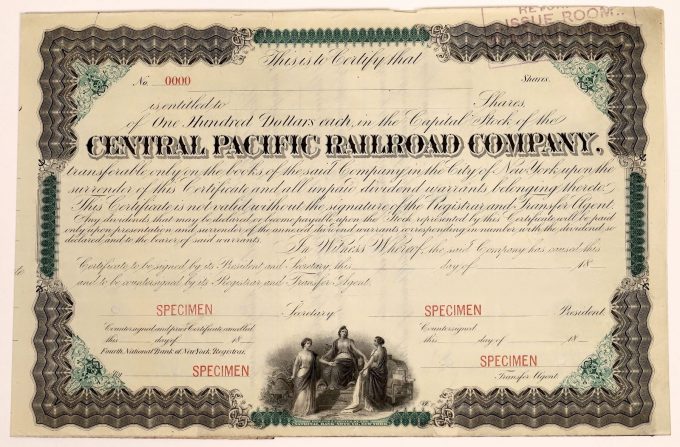 RETURN
ISSUE ROOM
This is to Certify that
No. 0000 Shares.
is entitled to Shares
of One Hundred Dollars each, in the Capital Stock of the
CENTRAL PACIFIC RAILROAD COMPANY,
transferable only on the books of the said Company in the City of New York upon the
surrender of this Certificate and all unpaid dividend warrants belonging thereto.
This Certificate is not valid without the signature of the Registrar and Transfer Agent.
Any dividends that may be declared or become payable upon the Stock represented by this Certificate will be paid
only upon presentation and surrender of the annexed dividend warrants corresponding in number with the dividend so
declared and to the bearer of said warrants.
In Witness Whereof, the said Company has caused this
Certificate to be signed by its President and Secretary, this day of 18
and to be countersigned by its Registrar and Transfer Agent.
SPECIMEN Secretary. SPECIMEN President.
Countersigned and prior Certificate cancelled Countersigned
this day of 18 this day of 18
Fourth National Bank of New York, Registrar.
By SPECIMEN SPECIMEN
Transfer Agent.
NATIONAL BANK NOTE CO. NEW YORK